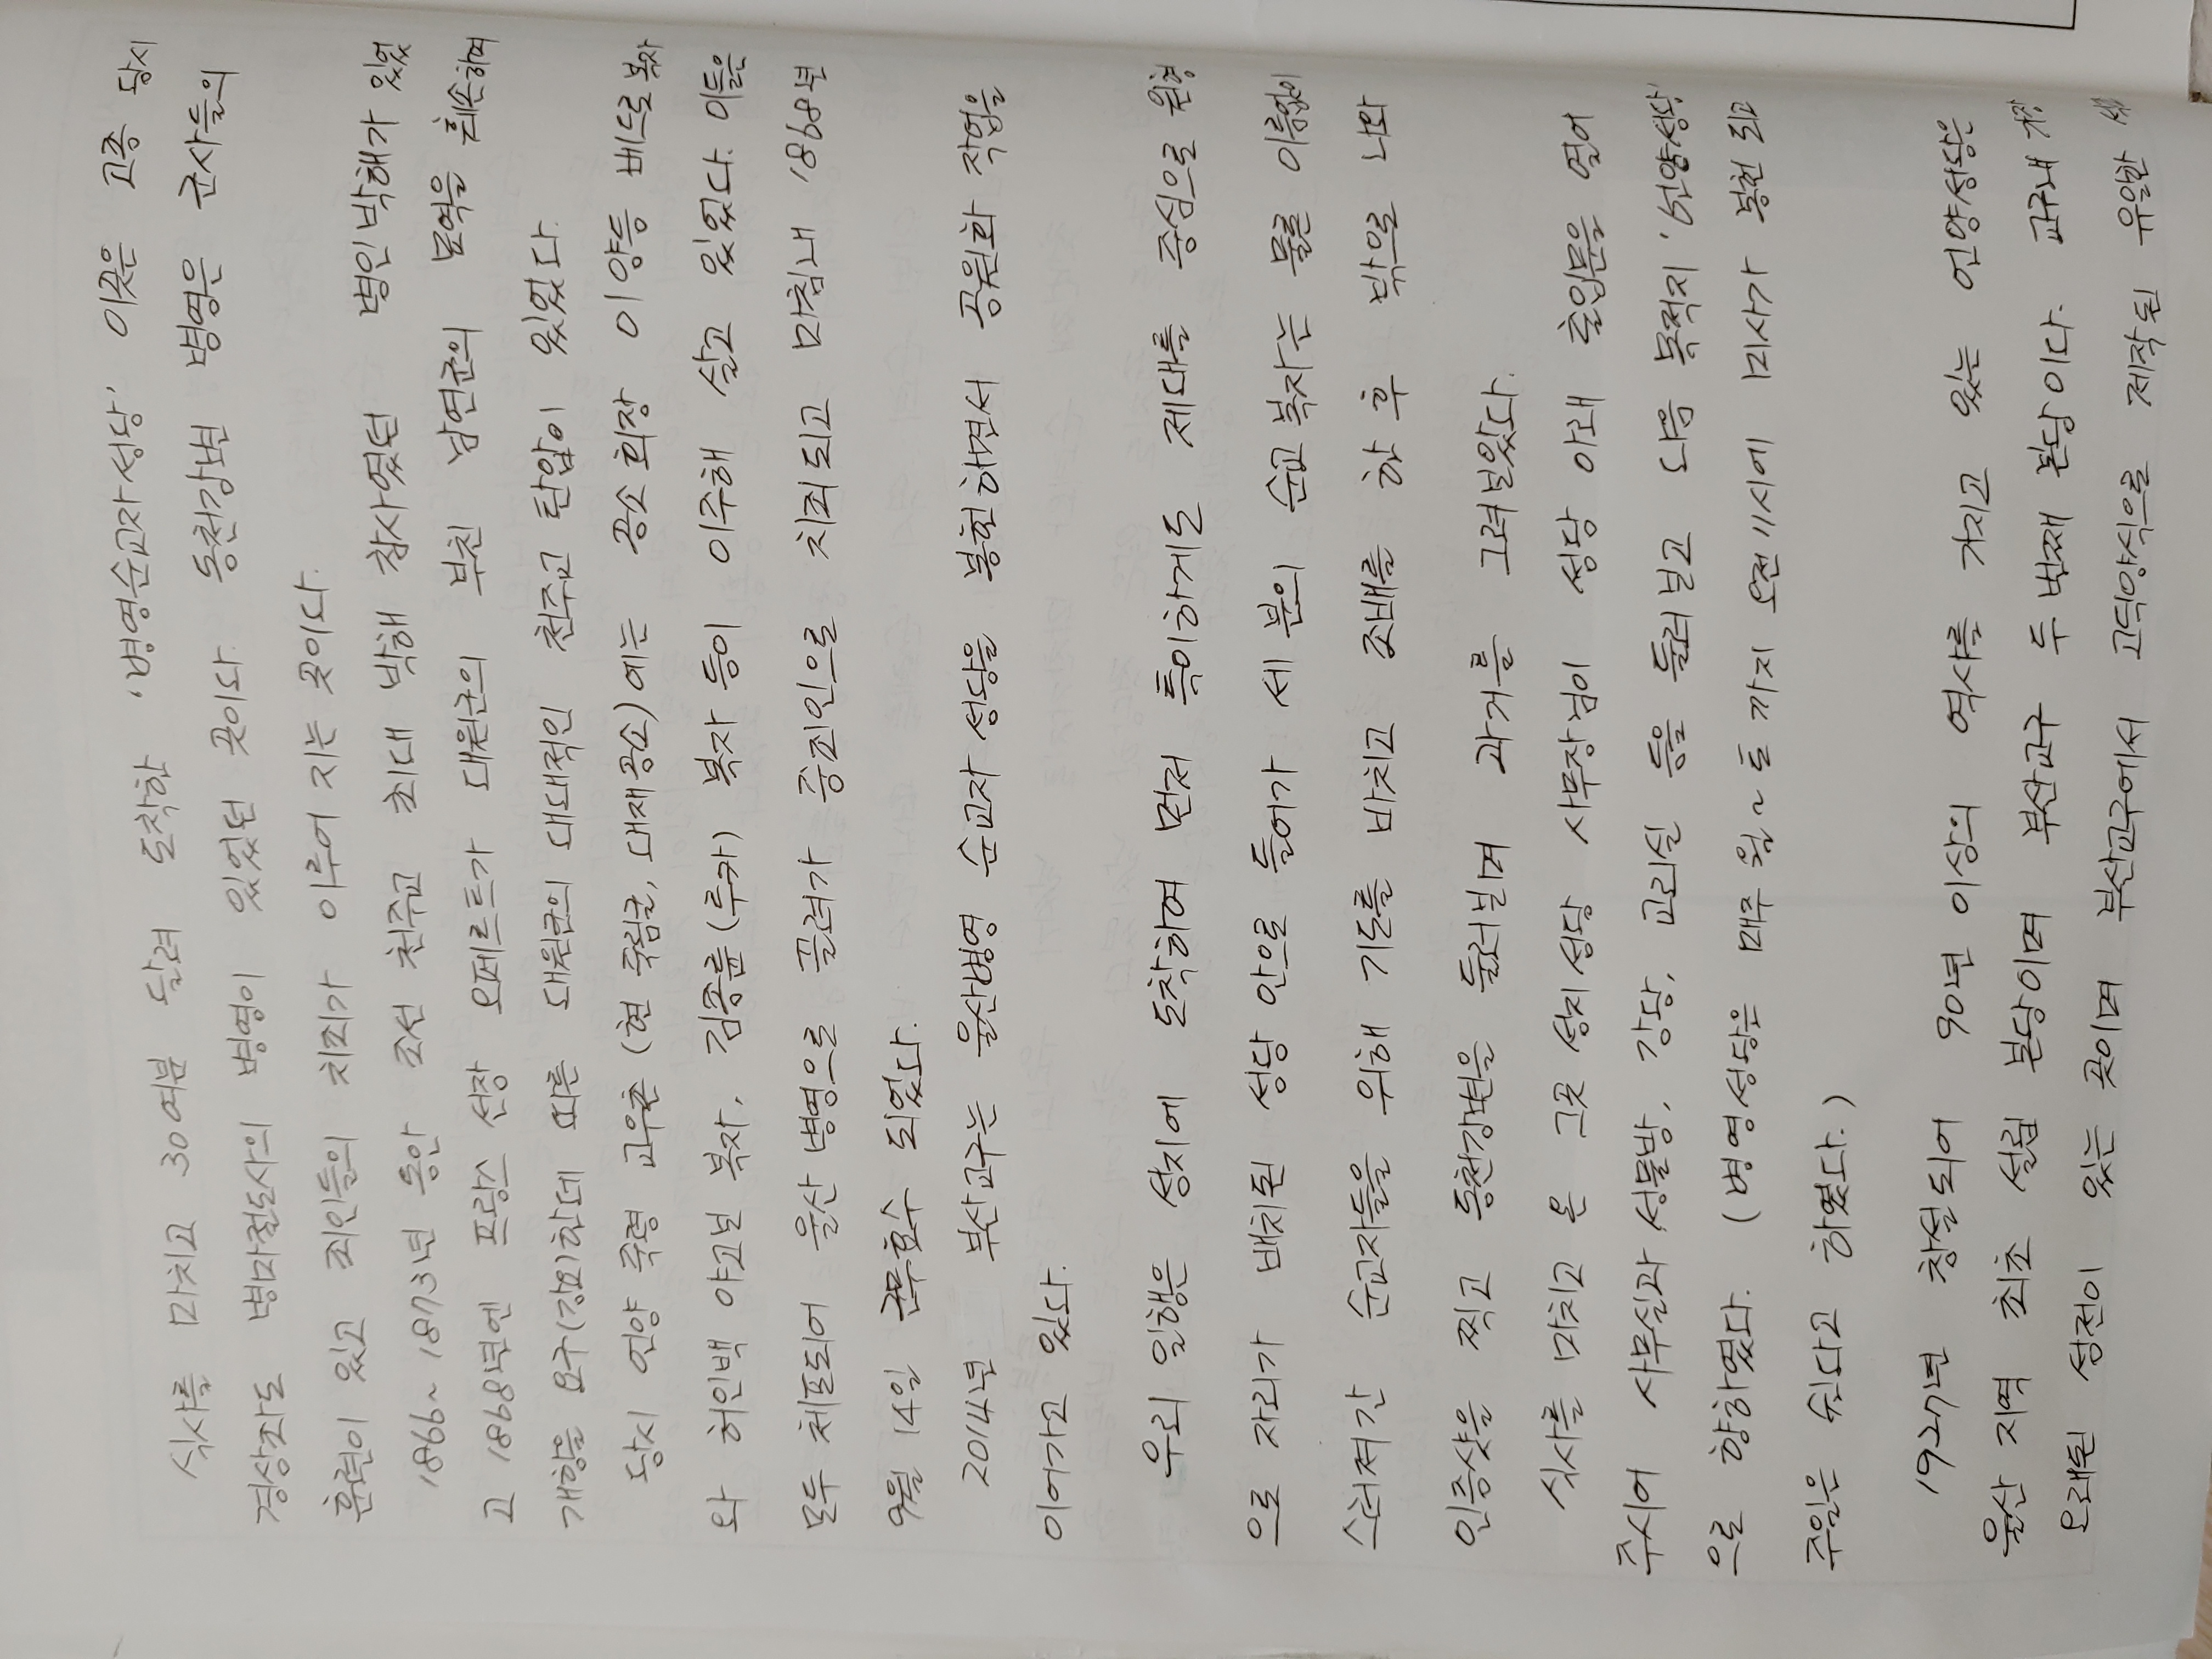 식사를 마치고 30여분 달려 도착한 '병영순교자성당' 이곳은 고종 당시
경상좌도 병마절도사의 병영이 있었던 곳이다. 동천강변 병영은 군사들의
훈련이 있고 죄인들의 치죄가 이루어 지는 곳이다.
1866~1873년 동안 조선 천주교 최대 박해 참사였던 병인박해가 있었
고 1868년엔 프랑스 선장 오페르트가 대원군의 부친 남연군의 묘역을 훼손하며
개항을 요구(강요)한데 따른 대원군의 대대적인 천주교 탄압이 있었다.
당시 언양 죽령 교우촌 (현 죽림굴, 대재공소)에는 공소회장 이양등 베드로 복자
와 허인백 야고보 복자, 김종륜(루카) 복자 등이 이주해 살고 있었다. 이들은
모두 체포되어 울산 병영으로 끌려가 중죄인으로 치죄되고 마침내 1868년
9월 14일 군무효수 되었다.
2014년 부산교구는 울산병영 순교자 성당을 봉헌하면서 공원화 작업을
이어가고 있다.
우리 일행은 성지에 도착하여 먼저 특이하게도 제대를 중심으로 원형
으로 자리가 배치된 성당 안으로 들어가 세 분의 순교 복자는 물론 이름없이
스러져간 순교자들을 위해 기도를 바치고 조배를 한 후 밖으로 나와
인증샷을 찍고 동천강변을 둘러보며 과거를 그려보았다.
식사를 마치고 온 그곳 성지성당 사무장님이 성당 아래 출입문을 열어
주시어 사무실과 성물방, 강당, 교리실 등을 둘러보고 다음 목적지 '언양성당'
으로 향하였다. (병영성당은 매주 월~토 까지 오전 11시에 미사가 봉헌 되고
주일은 쉰다고 하였다.)
1927년 창설되어 90년 이상의 역사를 가지고 있는 언양성당은
울산 지역 최초 설립 본당이며 부산교구 두 번째 본당이다. 교구내 가장
오래된 성전이 있는 곳이며 부산교구에서 고딕양식으로 제작된 유일한